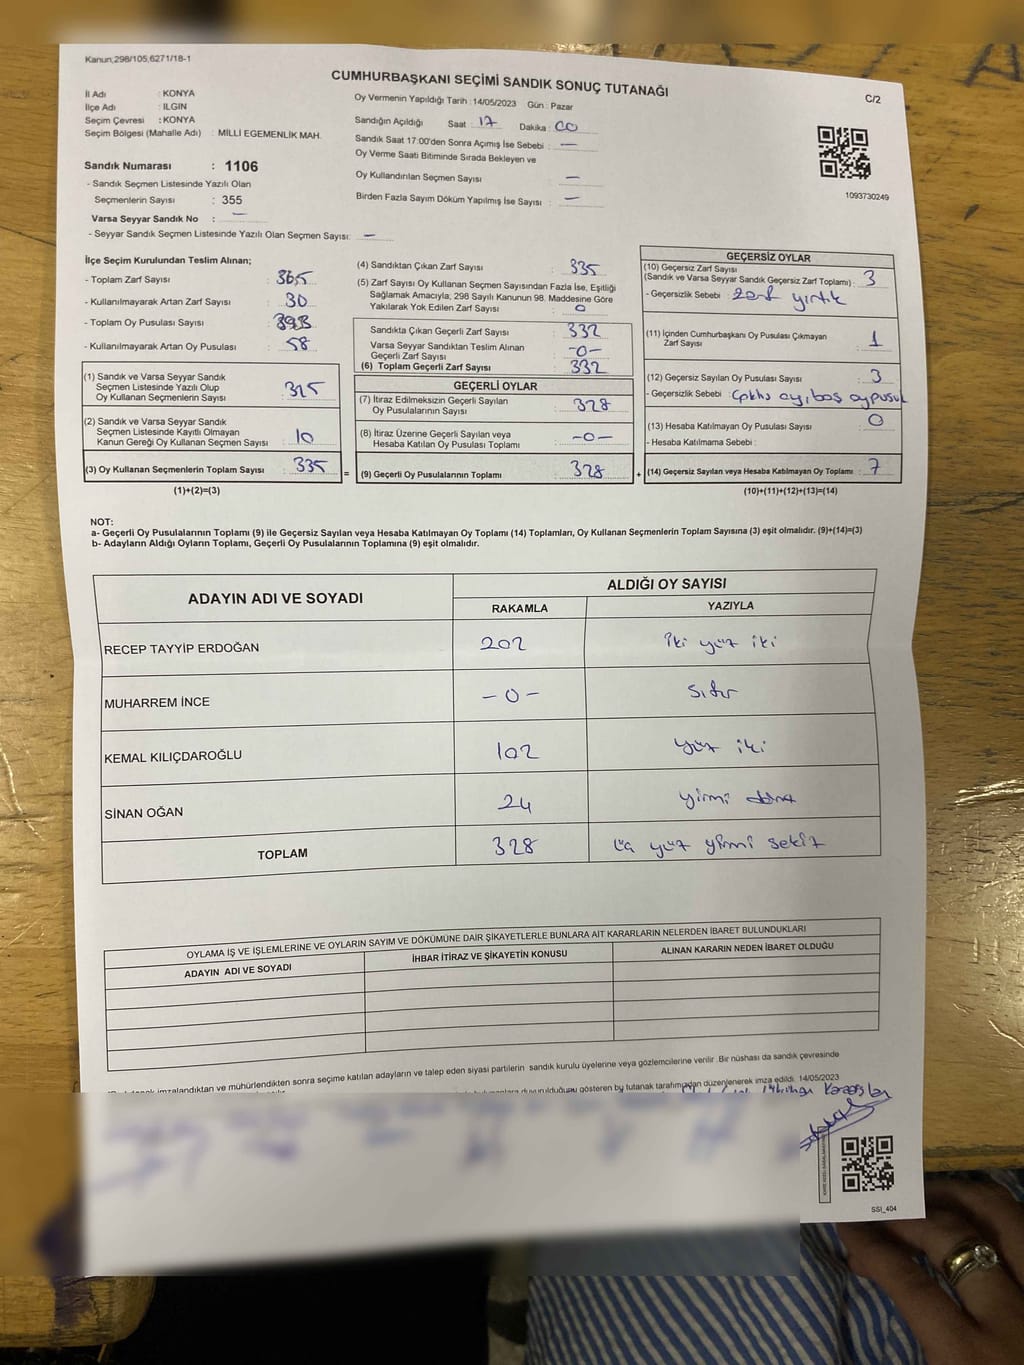 Kanun;298/105,6271/18-1
CUMHURBAŞKANI SEÇİMİ SANDIK SONUÇ TUTANAĞI
C/2
İl Adı : KONYA
İlçe Adı : ILGIN
Seçim Çevresi : KONYA
Seçim Bölgesi (Mahalle Adı) : MİLLİ EGEMENLİK MAH.
Sandık Numarası : 1106
- Sandık Seçmen Listesinde Yazılı Olan
Seçmenlerin Sayısı : 355
Varsa Seyyar Sandık No : —
- Seyyar Sandık Seçmen Listesinde Yazılı Olan Seçmen Sayısı: —
Oy Vermenin Yapıldığı Tarih : 14/05/2023 Gün : Pazar
Sandığın Açıldığı Saat : 17 Dakika : 00
Sandık Saat 17:00'den Sonra Açımış İse Sebebi : —
Oy Verme Saati Bitiminde Sırada Bekleyen ve
Oy Kullandırılan Seçmen Sayısı : —
Birden Fazla Sayım Döküm Yapılmış İse Sayısı : —
1093730249
İlçe Seçim Kurulundan Teslim Alınan;
- Toplam Zarf Sayısı : 365
- Kullanılmayarak Artan Zarf Sayısı : 30
- Toplam Oy Pusulası Sayısı : 393
- Kullanılmayarak Artan Oy Pusulası : 58
(1) Sandık ve Varsa Seyyar Sandık
Seçmen Listesinde Yazılı Olup
Oy Kullanan Seçmenlerin Sayısı : 325
(2) Sandık ve Varsa Seyyar Sandık
Seçmen Listesinde Kayıtlı Olmayan
Kanun Gereği Oy Kullanan Seçmen Sayısı : 10
(3) Oy Kullanan Seçmenlerin Toplam Sayısı : 335
(1)+(2)=(3)
(4) Sandıktan Çıkan Zarf Sayısı : 335
(5) Zarf Sayısı Oy Kullanan Seçmen Sayısından Fazla İse, Eşitliği
Sağlamak Amacıyla, 298 Sayılı Kanunun 98. Maddesine Göre
Yakılarak Yok Edilen Zarf Sayısı : 0
Sandıkta Çıkan Geçerli Zarf Sayısı : 332
Varsa Seyyar Sandıktan Teslim Alınan
Geçerli Zarf Sayısı : -0-
(6) Toplam Geçerli Zarf Sayısı : 332
GEÇERLİ OYLAR
(7) İtiraz Edilmeksizin Geçerli Sayılan
Oy Pusulalarının Sayısı : 328
(8) İtiraz Üzerine Geçerli Sayılan veya
Hesaba Katılan Oy Pusulası Toplamı : -0-
= (9) Geçerli Oy Pusulalarının Toplamı : 328 +
GEÇERSİZ OYLAR
(10) Geçersiz Zarf Sayısı
(Sandık ve Varsa Seyyar Sandık Geçersiz Zarf Toplamı) : 3
- Geçersizlik Sebebi : zarf yırtık
(11) İçinden Cumhurbaşkanı Oy Pusulası Çıkmayan
Zarf Sayısı : 1
(12) Geçersiz Sayılan Oy Pusulası Sayısı : 3
- Geçersizlik Sebebi : oy, boş oy pusul
(13) Hesaba Katılmayan Oy Pusulası Sayısı : 0
- Hesaba Katılmama Sebebi :
(14) Geçersiz Sayılan veya Hesaba Katılmayan Oy Toplamı : 7
(10)+(11)+(12)+(13)=(14)
NOT:
a- Geçerli Oy Pusulalarının Toplamı (9) ile Geçersiz Sayılan veya Hesaba Katılmayan Oy Toplamı (14) Toplamları, Oy Kullanan Seçmenlerin Toplam Sayısına (3) eşit olmalıdır. (9)+(14)=(3)
b- Adayların Aldığı Oyların Toplamı, Geçerli Oy Pusulalarının Toplamına (9) eşit olmalıdır.
ADAYIN ADI VE SOYADI
ALDIĞI OY SAYISI
RAKAMLA YAZIYLA
RECEP TAYYİP ERDOĞAN 202 iki yüz iki
MUHARREM İNCE -0- sıfır
KEMAL KILIÇDAROĞLU 102 yüz iki
SİNAN OĞAN 24 yirmi
TOPLAM 328 üç yüz yirmi sekiz
OYLAMA İŞ VE İŞLEMLERİNE VE OYLARIN SAYIM VE DÖKÜMÜNE DAİR ŞİKAYETLERLE BUNLARA AİT KARARLARIN NELERDEN İBARET BULUNDUKLARI
ADAYIN ADI VE SOYADI İHBAR İTİRAZ VE ŞİKAYETİN KONUSU ALINAN KARARIN NEDEN İBARET OLDUĞU
imzalandıktan ve mühürlendikten sonra seçime katılan adayların ve talep eden siyasi partilerin sandık kurulu üyelerine veya gözlemcilerine verilir. Bir nüshası da sandık çevresinde
duyurulduğunu gösteren bu tutanak tarafımızdan düzenlenerek imza edildi. 14/05/2023
SSI_404